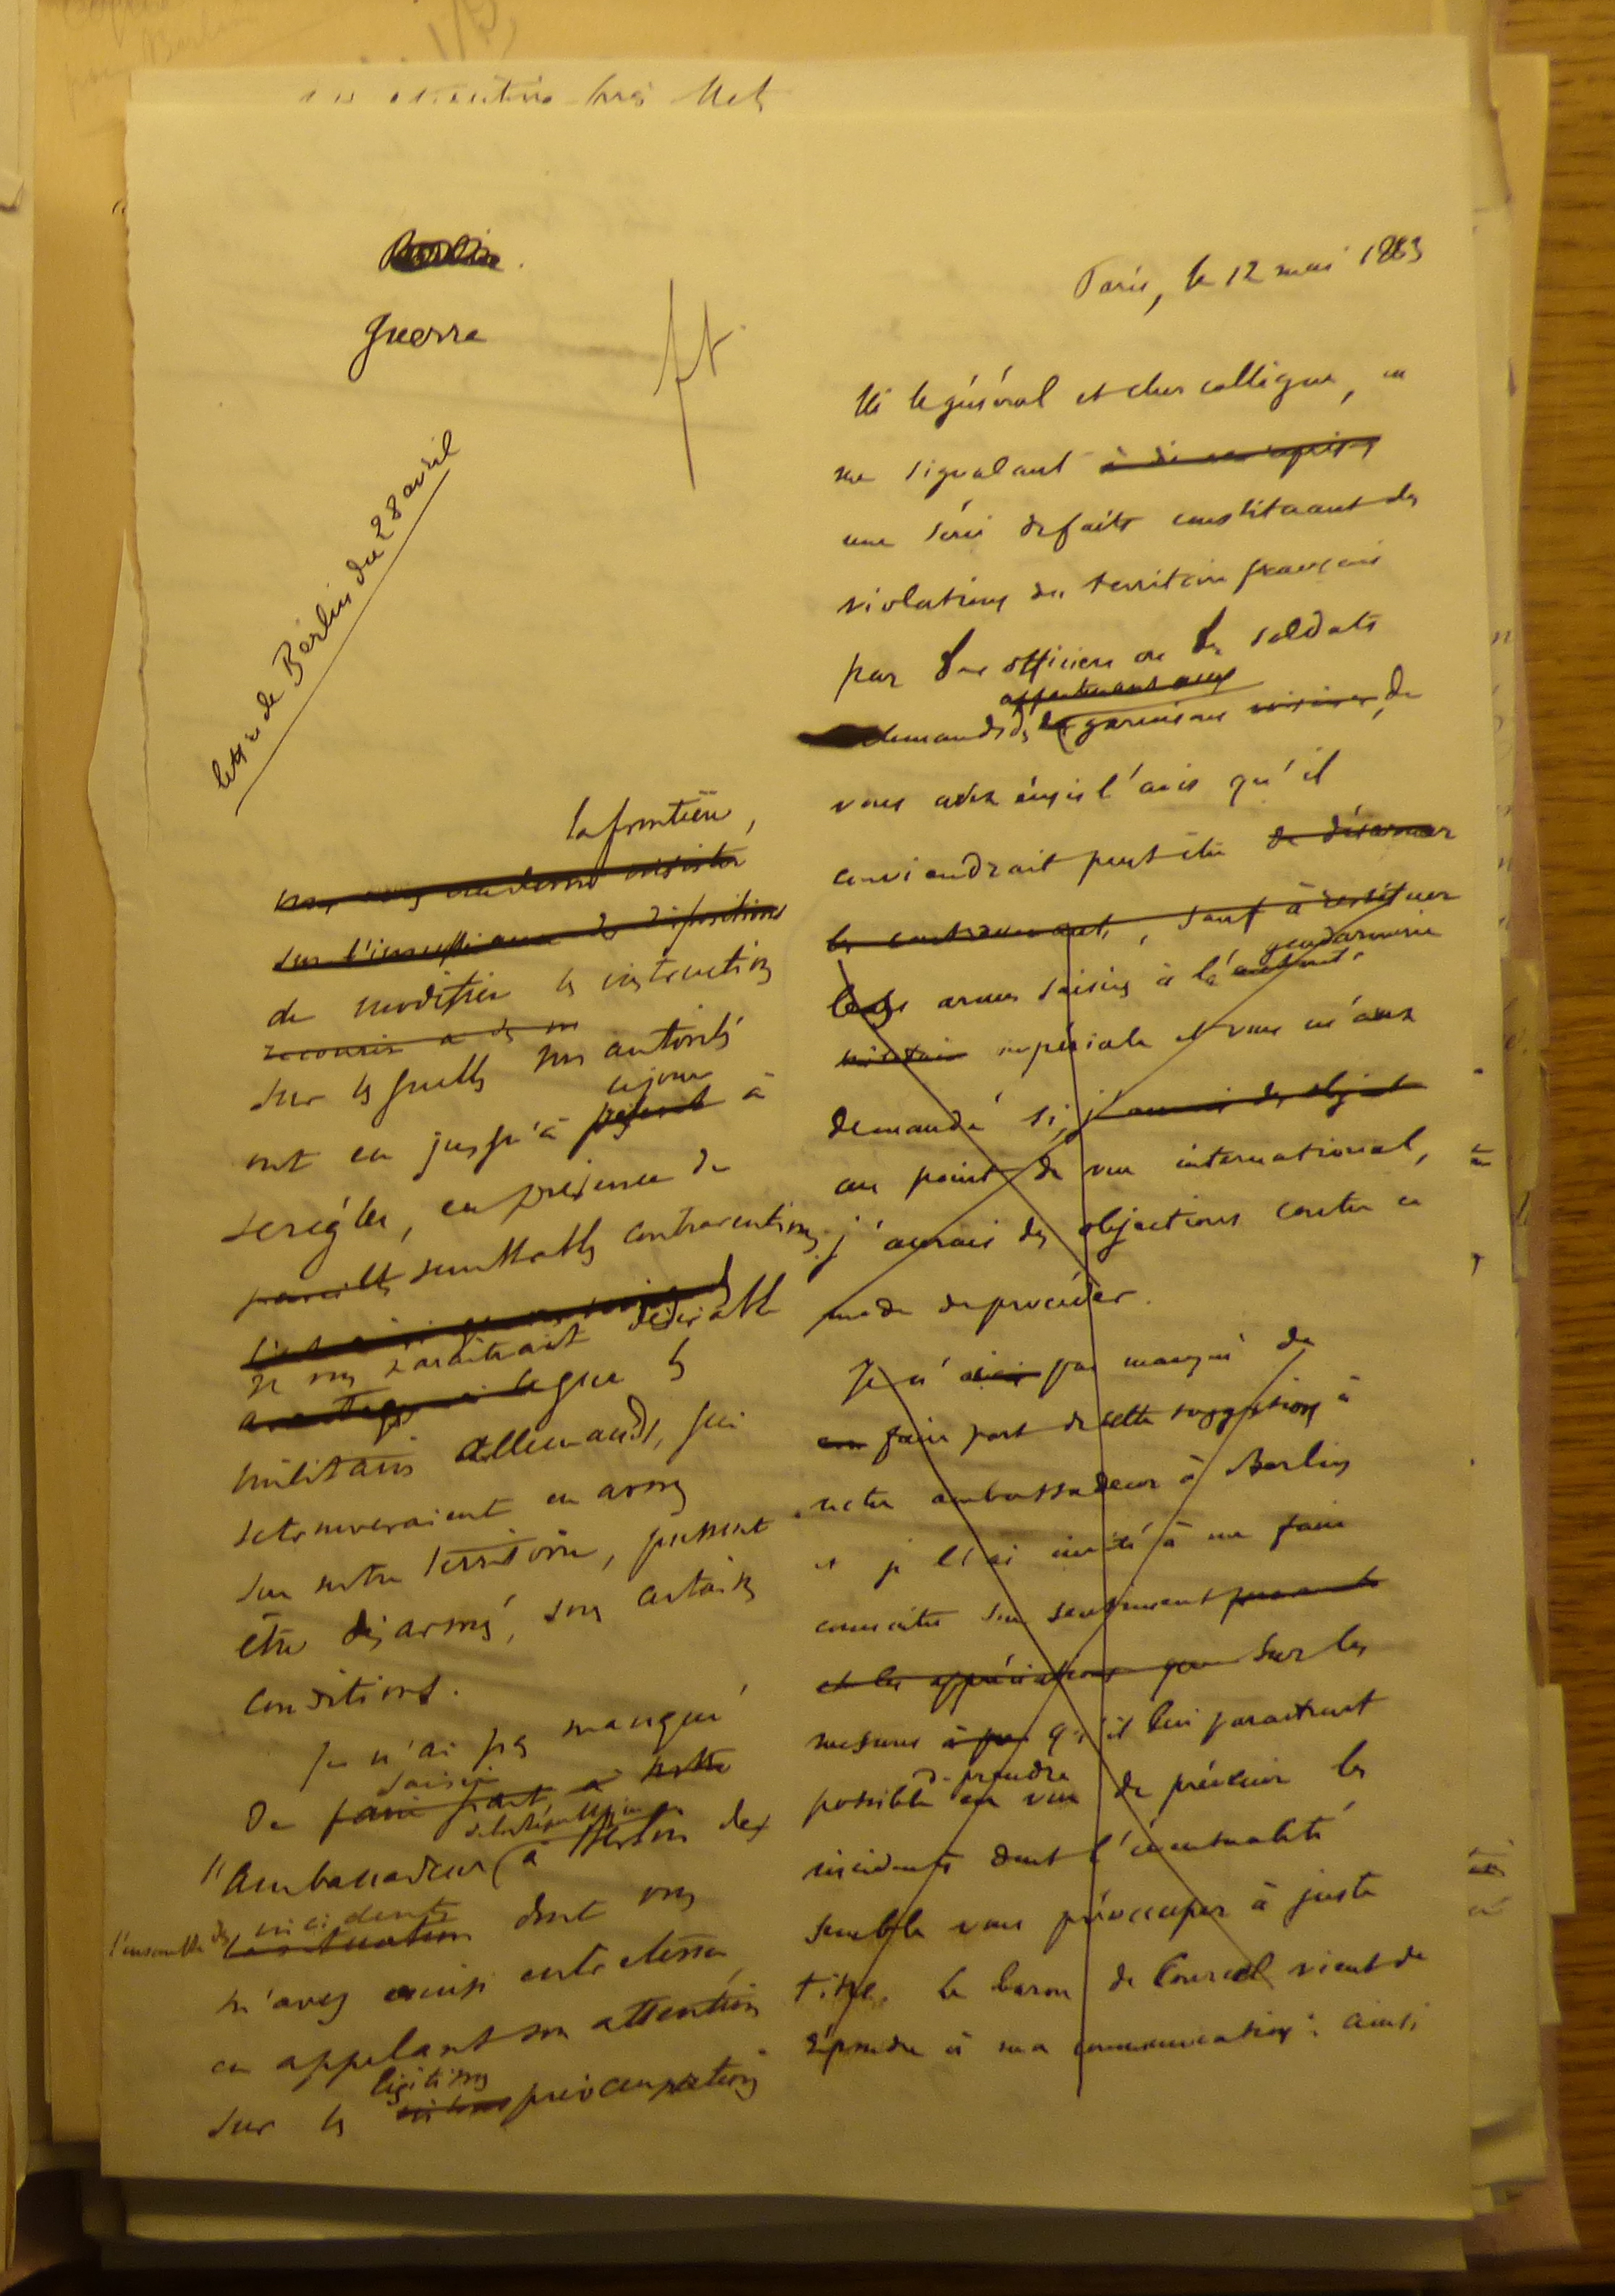 Guerre
lettre de Berlin du 28 avril
Paris, le 12 mai 1883
M. le général et cher collègue, en
me signalant
une série de faits constituant des
violations du territoire français
par des officiers ou des soldats
appartenant aux
demandés garnisons voisines de
vous avez émis l'avis qu'il
conviendrait peut-être de désarmer
les contrevenants, sauf à restituer
gendarmerie
les armes saisies à l'autorité
militaire impériale et vous m'avez
demandé si j'aurais des object
au point de vue international,
j'aurais des objections contre ce
mode de procéder.
Je n'ai pas manqué de
faire part de cette suggestion à
notre ambassadeur à Berlin
et je l'ai invité à me faire
connaître son sentiment
et les appréciations que sur les
mesures qu'il lui paraitrait
à prendre
possible en vue de prévenir les
incidents dont l'éventualité
semble vous préoccuper à juste
titre. Le baron de Courcel vient de
répondre à ma communication : ainsi
la frontière,
sur l'insuffisance des dispositions
de modifier les instructions
recourir à des
sur lesquelles nos autorités
ce jour
ont eu jusqu'à présent à
se régler, en présence de
pareilles semblables contraventions
Il vous paraitrait désirable
que les
militaires allemands, qui
se trouveraient en armes
sur notre territoire, pussent
être désarmés, sous certaines
conditions.
Je n'ai pas manqué
saisir
de faire part à notre
l'Ambassadeur à Berlin de
l'ensemble des incidents
la situation dont vous
m'avez ainsi entretenu
en appelant son attention
légitimes
sur les préoccupations